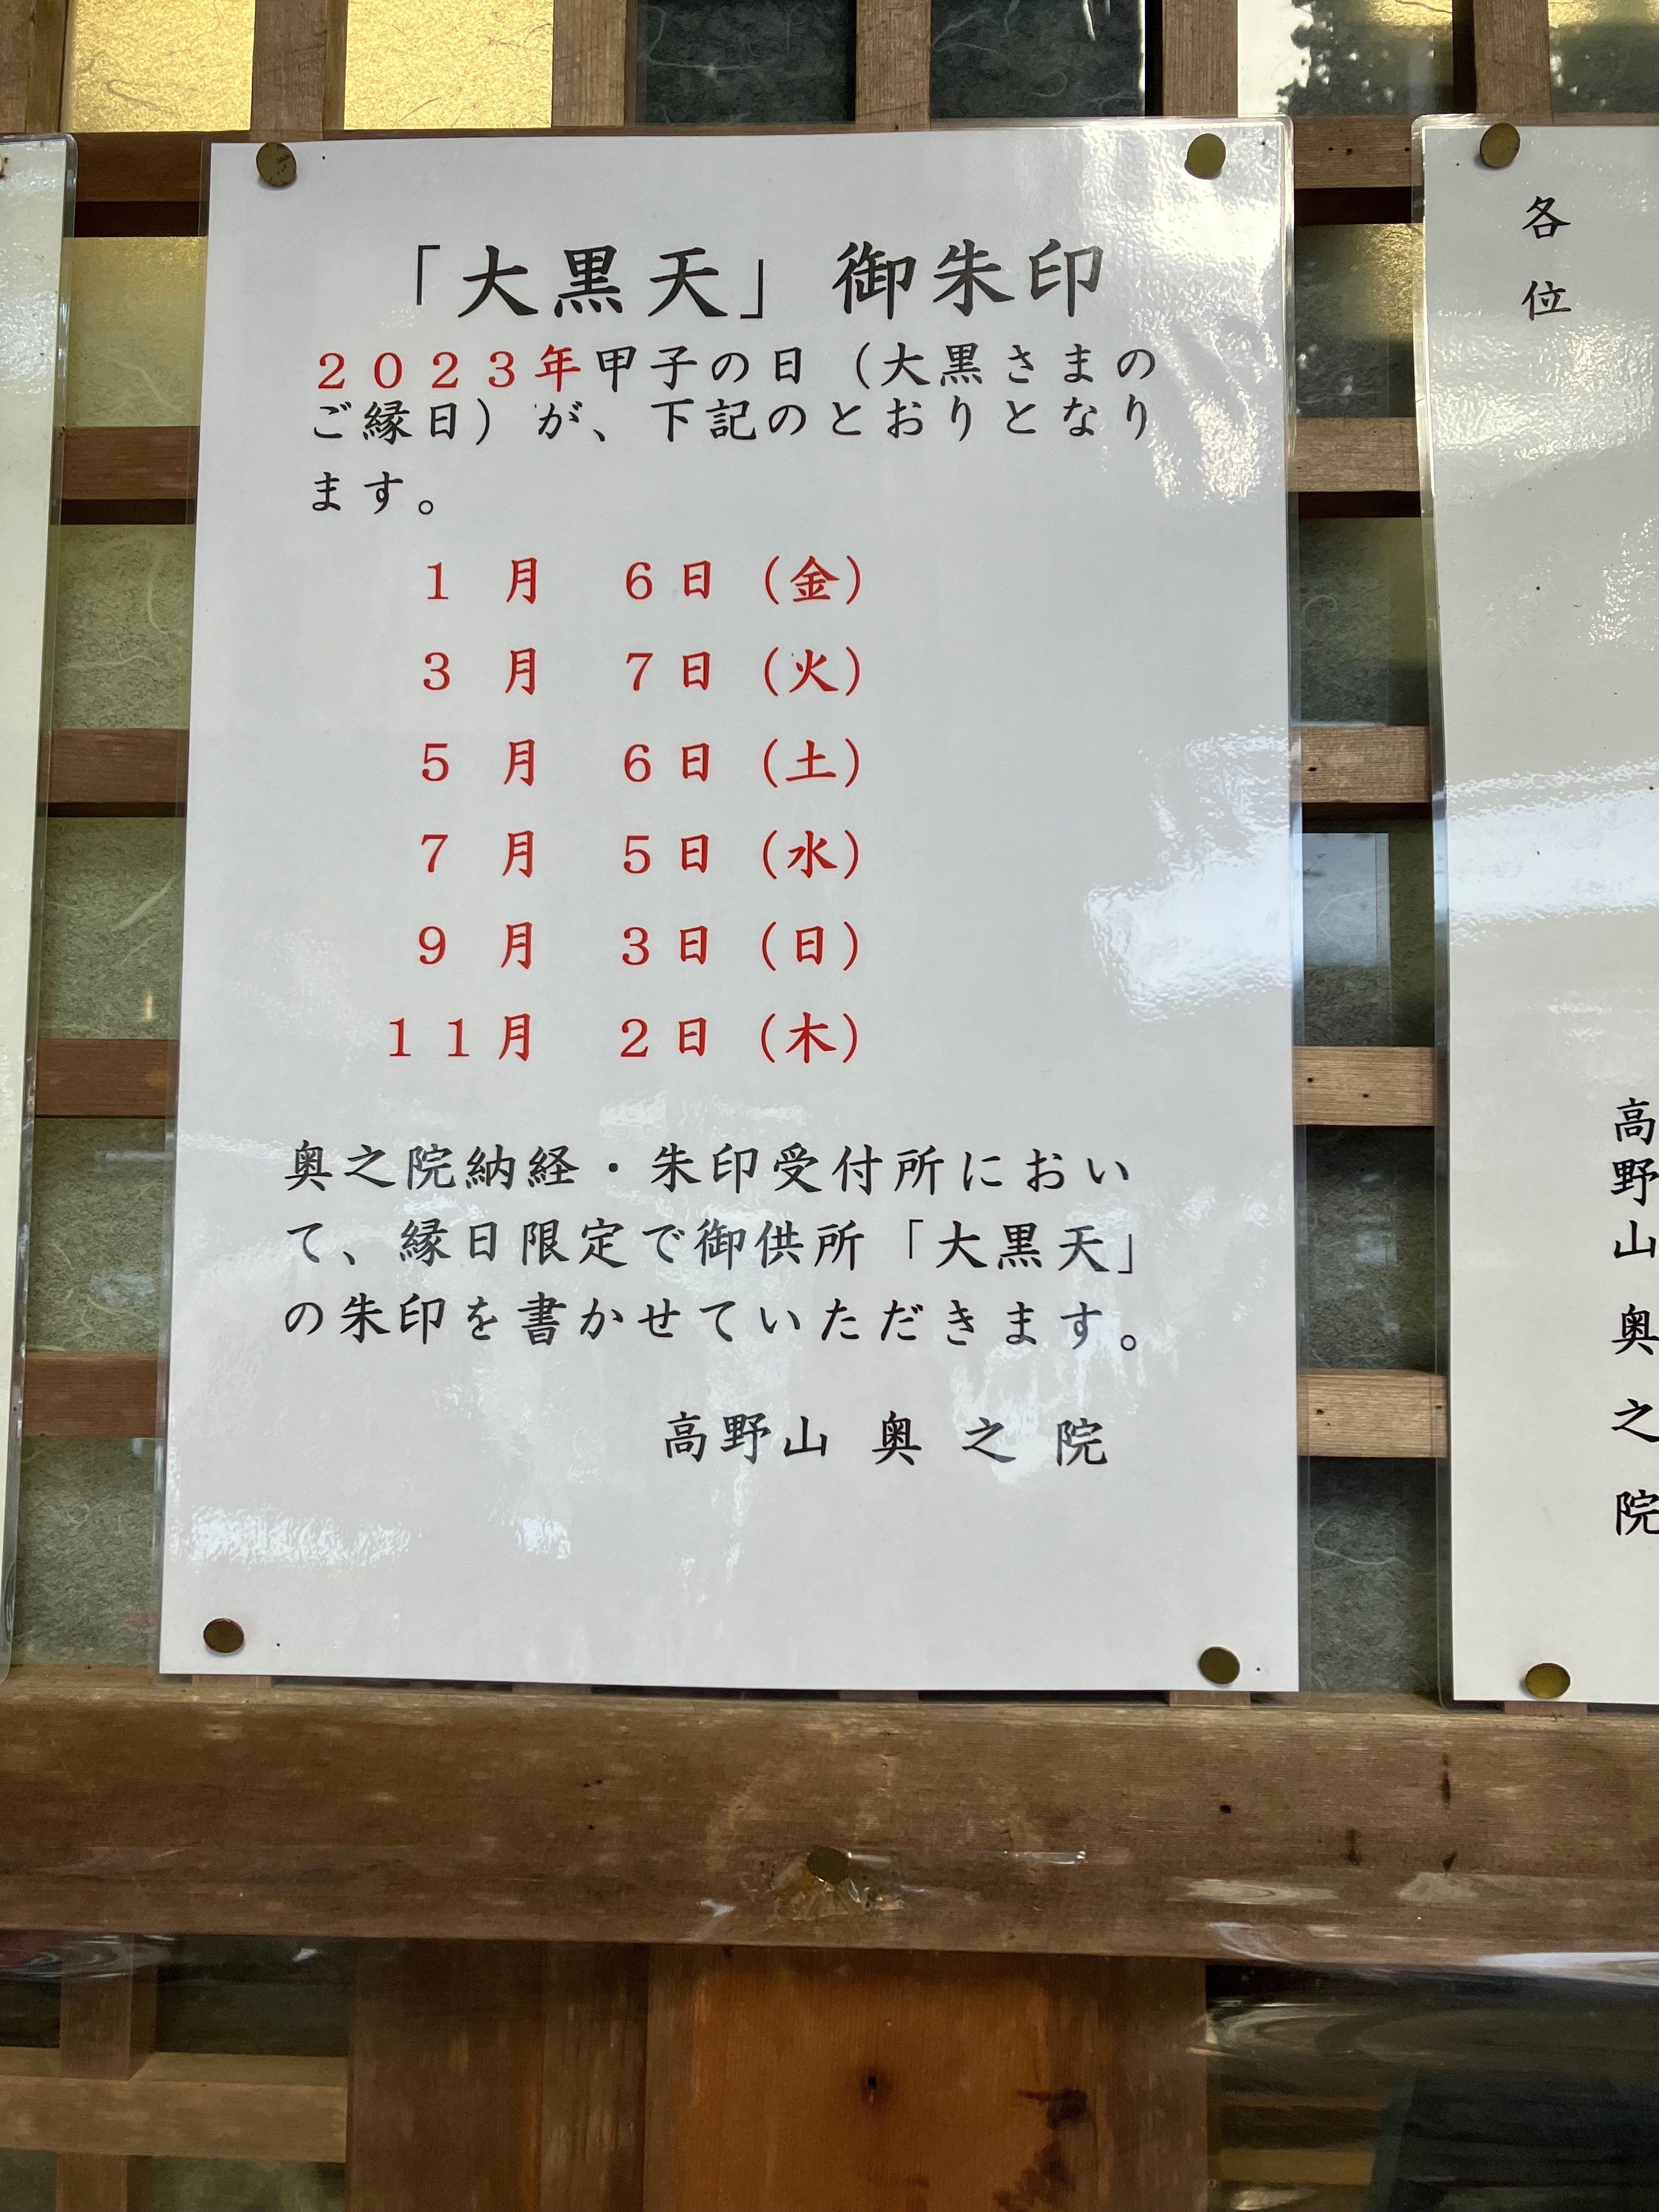 「大黒天」御朱印
２０２３年甲子の日（大黒さまの
ご縁日）が、下記のとおりとなり
ます。
１月　６日（金）
３月　７日（火）
５月　６日（土）
７月　５日（水）
９月　３日（日）
１１月　２日（木）
奥之院納経・朱印受付所におい
て、縁日限定で御供所「大黒天」
の朱印を書かせていただきます。
高野山 奥之院
各位
高野山 奥之院